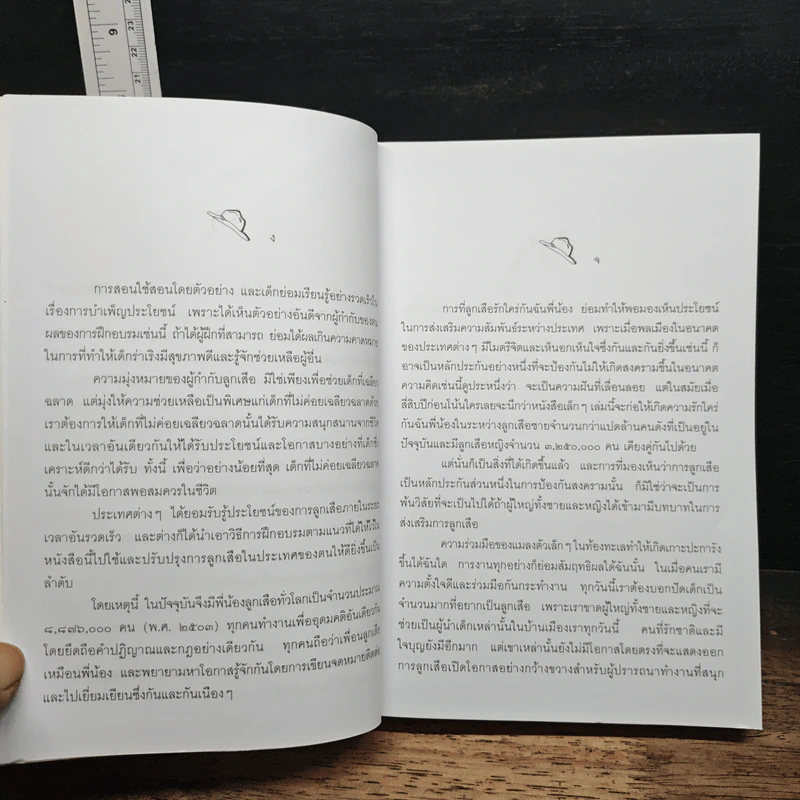 9
23
22
21
ง
การสอนใช้สอนโดยตัวอย่าง และเด็กย่อมเรียนรู้อย่างรวดเร็วใน
เรื่องการบำเพ็ญประโยชน์ เพราะได้เห็นตัวอย่างอันดีจากผู้กำกับของตน
ผลของการฝึกอบรมเช่นนี้ ถ้าได้ผู้ฝึกที่สามารถ ย่อมได้ผลเกินความคาดหมาย
ในการที่ทำให้เด็กร่าเริงมีสุขภาพดีและรู้จักช่วยเหลือผู้อื่น
ความมุ่งหมายของผู้กำกับลูกเสือ มิใช่เพียงเพื่อช่วยเด็กที่เฉลียว
ฉลาด แต่มุ่งให้ความช่วยเหลือเป็นพิเศษแก่เด็กที่ไม่ค่อยเฉลียวฉลาดด้วย
เราต้องการให้เด็กที่ไม่ค่อยเฉลียวฉลาดนั้นได้รับความสนุกสนานจากชีวิต
และในเวลาอันเดียวกันให้ได้รับประโยชน์และโอกาสบางอย่างที่เด็กซึ่ง
เคราะห์ดีกว่าได้รับ ทั้งนี้ เพื่อว่าอย่างน้อยที่สุด เด็กที่ไม่ค่อยเฉลียวฉลาด
นั้นจักได้มีโอกาสพอสมควรในชีวิต
ประเทศต่างๆ ได้ยอมรับรู้ประโยชน์ของการลูกเสือภายในระยะ
เวลาอันรวดเร็ว และต่างก็ได้นำเอาวิธีการฝึกอบรมตามแนวที่ได้ให้ไว้ใน
หนังสือนี้ไปใช้และปรับปรุงการลูกเสือในประเทศของตนให้ดียิ่งขึ้นเป็น
ลำดับ
โดยเหตุนี้ ในปัจจุบันจึงมีพี่น้องลูกเสือทั่วโลกเป็นจำนวนประมาณ
๘,๘๗๖,๐๐๐ คน (พ.ศ. ๒๕๐๓) ทุกคนทำงานเพื่ออุดมคติอันเดียวกัน
โดยยึดถือคำปฏิญาณและกฎอย่างเดียวกัน ทุกคนถือว่าเพื่อนลูกเสือ
เหมือนพี่น้อง และพยายามหาโอกาสรู้จักกันโดยการเขียนจดหมายติดต่อ
และไปเยี่ยมเยียนซึ่งกันและกันเนืองๆ
จ
การที่ลูกเสือรักใคร่กันฉันพี่น้อง ย่อมทำให้พอมองเห็นประโยชน์
ในการส่งเสริมความสัมพันธ์ระหว่างประเทศ เพราะเมื่อพลเมืองในอนาคต
ของประเทศต่างๆ มีไมตรีจิตและเห็นอกเห็นใจซึ่งกันและกันยิ่งขึ้นเช่นนี้ ก็
อาจเป็นหลักประกันอย่างหนึ่งที่จะป้องกันไม่ให้เกิดสงครามขึ้นในอนาคต
ความคิดเช่นนี้ดูประหนึ่งว่า จะเป็นความฝันที่เลื่อนลอย แต่ในสมัยเมื่อ
สี่สิบปีก่อนโน้นใครเลยจะนึกว่าหนังสือเล็กๆ เล่มนี้จะก่อให้เกิดความรักใคร่
กันฉันพี่น้องในระหว่างลูกเสือชายจำนวนกว่าแปดล้านคนดังที่เป็นอยู่ใน
ปัจจุบันและมีลูกเสือหญิงจำนวน ๓,๒๕๐,๐๐๐ คน เคียงคู่กันไปด้วย
แต่นั่นก็เป็นสิ่งที่ได้เกิดขึ้นแล้ว และการที่มองเห็นว่าการลูกเสือ
เป็นหลักประกันส่วนหนึ่งในการป้องกันสงครามนั้น ก็มิใช่ว่าจะเป็นการ
พ้นวิสัยที่จะเป็นไปได้ถ้าผู้ใหญ่ทั้งชายและหญิงได้เข้ามามีบทบาทในการ
ส่งเสริมการลูกเสือ
ความร่วมมือของแมลงตัวเล็กๆ ในท้องทะเลทำให้เกิดเกาะปะการัง
ขึ้นได้ฉันใด การงานทุกอย่างก็ย่อมสัมฤทธิผลได้ฉันนั้น ในเมื่อคนเรามี
ความตั้งใจดีและร่วมมือกันกระทำงาน ทุกวันนี้เราต้องบอกปัดเด็กเป็น
จำนวนมากที่อยากเป็นลูกเสือ เพราะเราขาดผู้ใหญ่ทั้งชายและหญิงที่จะ
ช่วยเป็นผู้นำเด็กเหล่านั้นในบ้านเมืองเราทุกวันนี้ คนที่รักชาติและมี
ใจบุญยังมีอีกมาก แต่เขาเหล่านั้นยังไม่มีโอกาสโดยตรงที่จะแสดงออก
การลูกเสือเปิดโอกาสอย่างกว้างขวางสำหรับผู้ปรารถนาทำงานที่สนุก